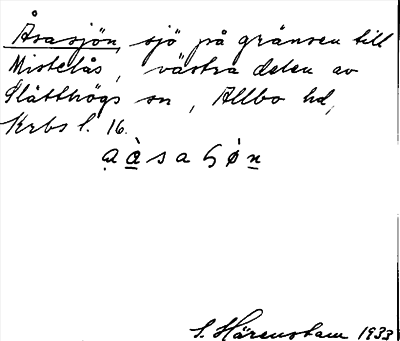 Åsasjön, sjö på gränsen till
Mistelås, västra delen av
Slätthögs sn, Allbo hd,
Krbs l. 16.
S. Härenstam 1933